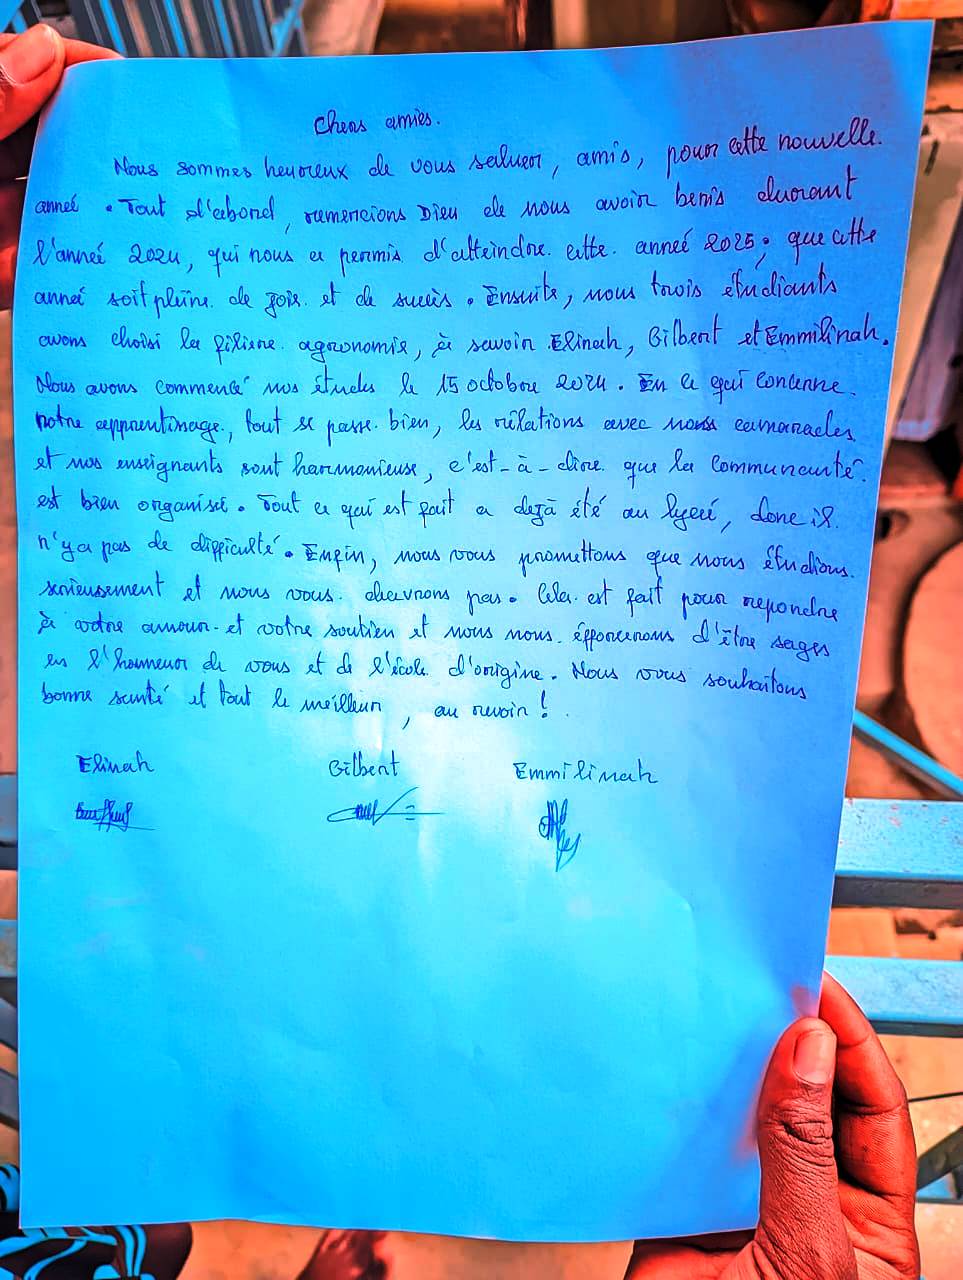 Chers amiės.
Nous sommes heureux de vous saluer, amis, pour cette nouvelle
anneé. Tout d'abord, remercions Dieu de nous avoir benis durant
l'anneé 2024, qui nous a permis d'atteindre cette anneé 2025; que cette
anneé soit pleine de joie et de succès. Ensuite, nous trois étudiants
avons choisi la filiere agronomie, à savoir Elinah, Gilbert et Emmilinah.
Nous avons commencé nos études le 15 octobre 2024. En ce qui concerne
notre apprentimage, tout se passe bien, les rélations avec nous camarades
et nos enseignants sont harmonieuse, c'est-à-dire que la communauté
est bien organisé. Tout ce qui est fait a dejà été au lyceé, donc il
n'y a pas de difficulté. Enfin, nous vous promettons que nous étudions
serieusement et nous vous pas. Cela est fait pour repondre
à votre amour et votre soutien et nous nous éfforcerons d'être sages
en l'honneur de vous et de l'école d'origine. Nous vous souhaitons
bonne santé et tout le meilleur, au revoir!
Elinah Gilbert Emmilinah